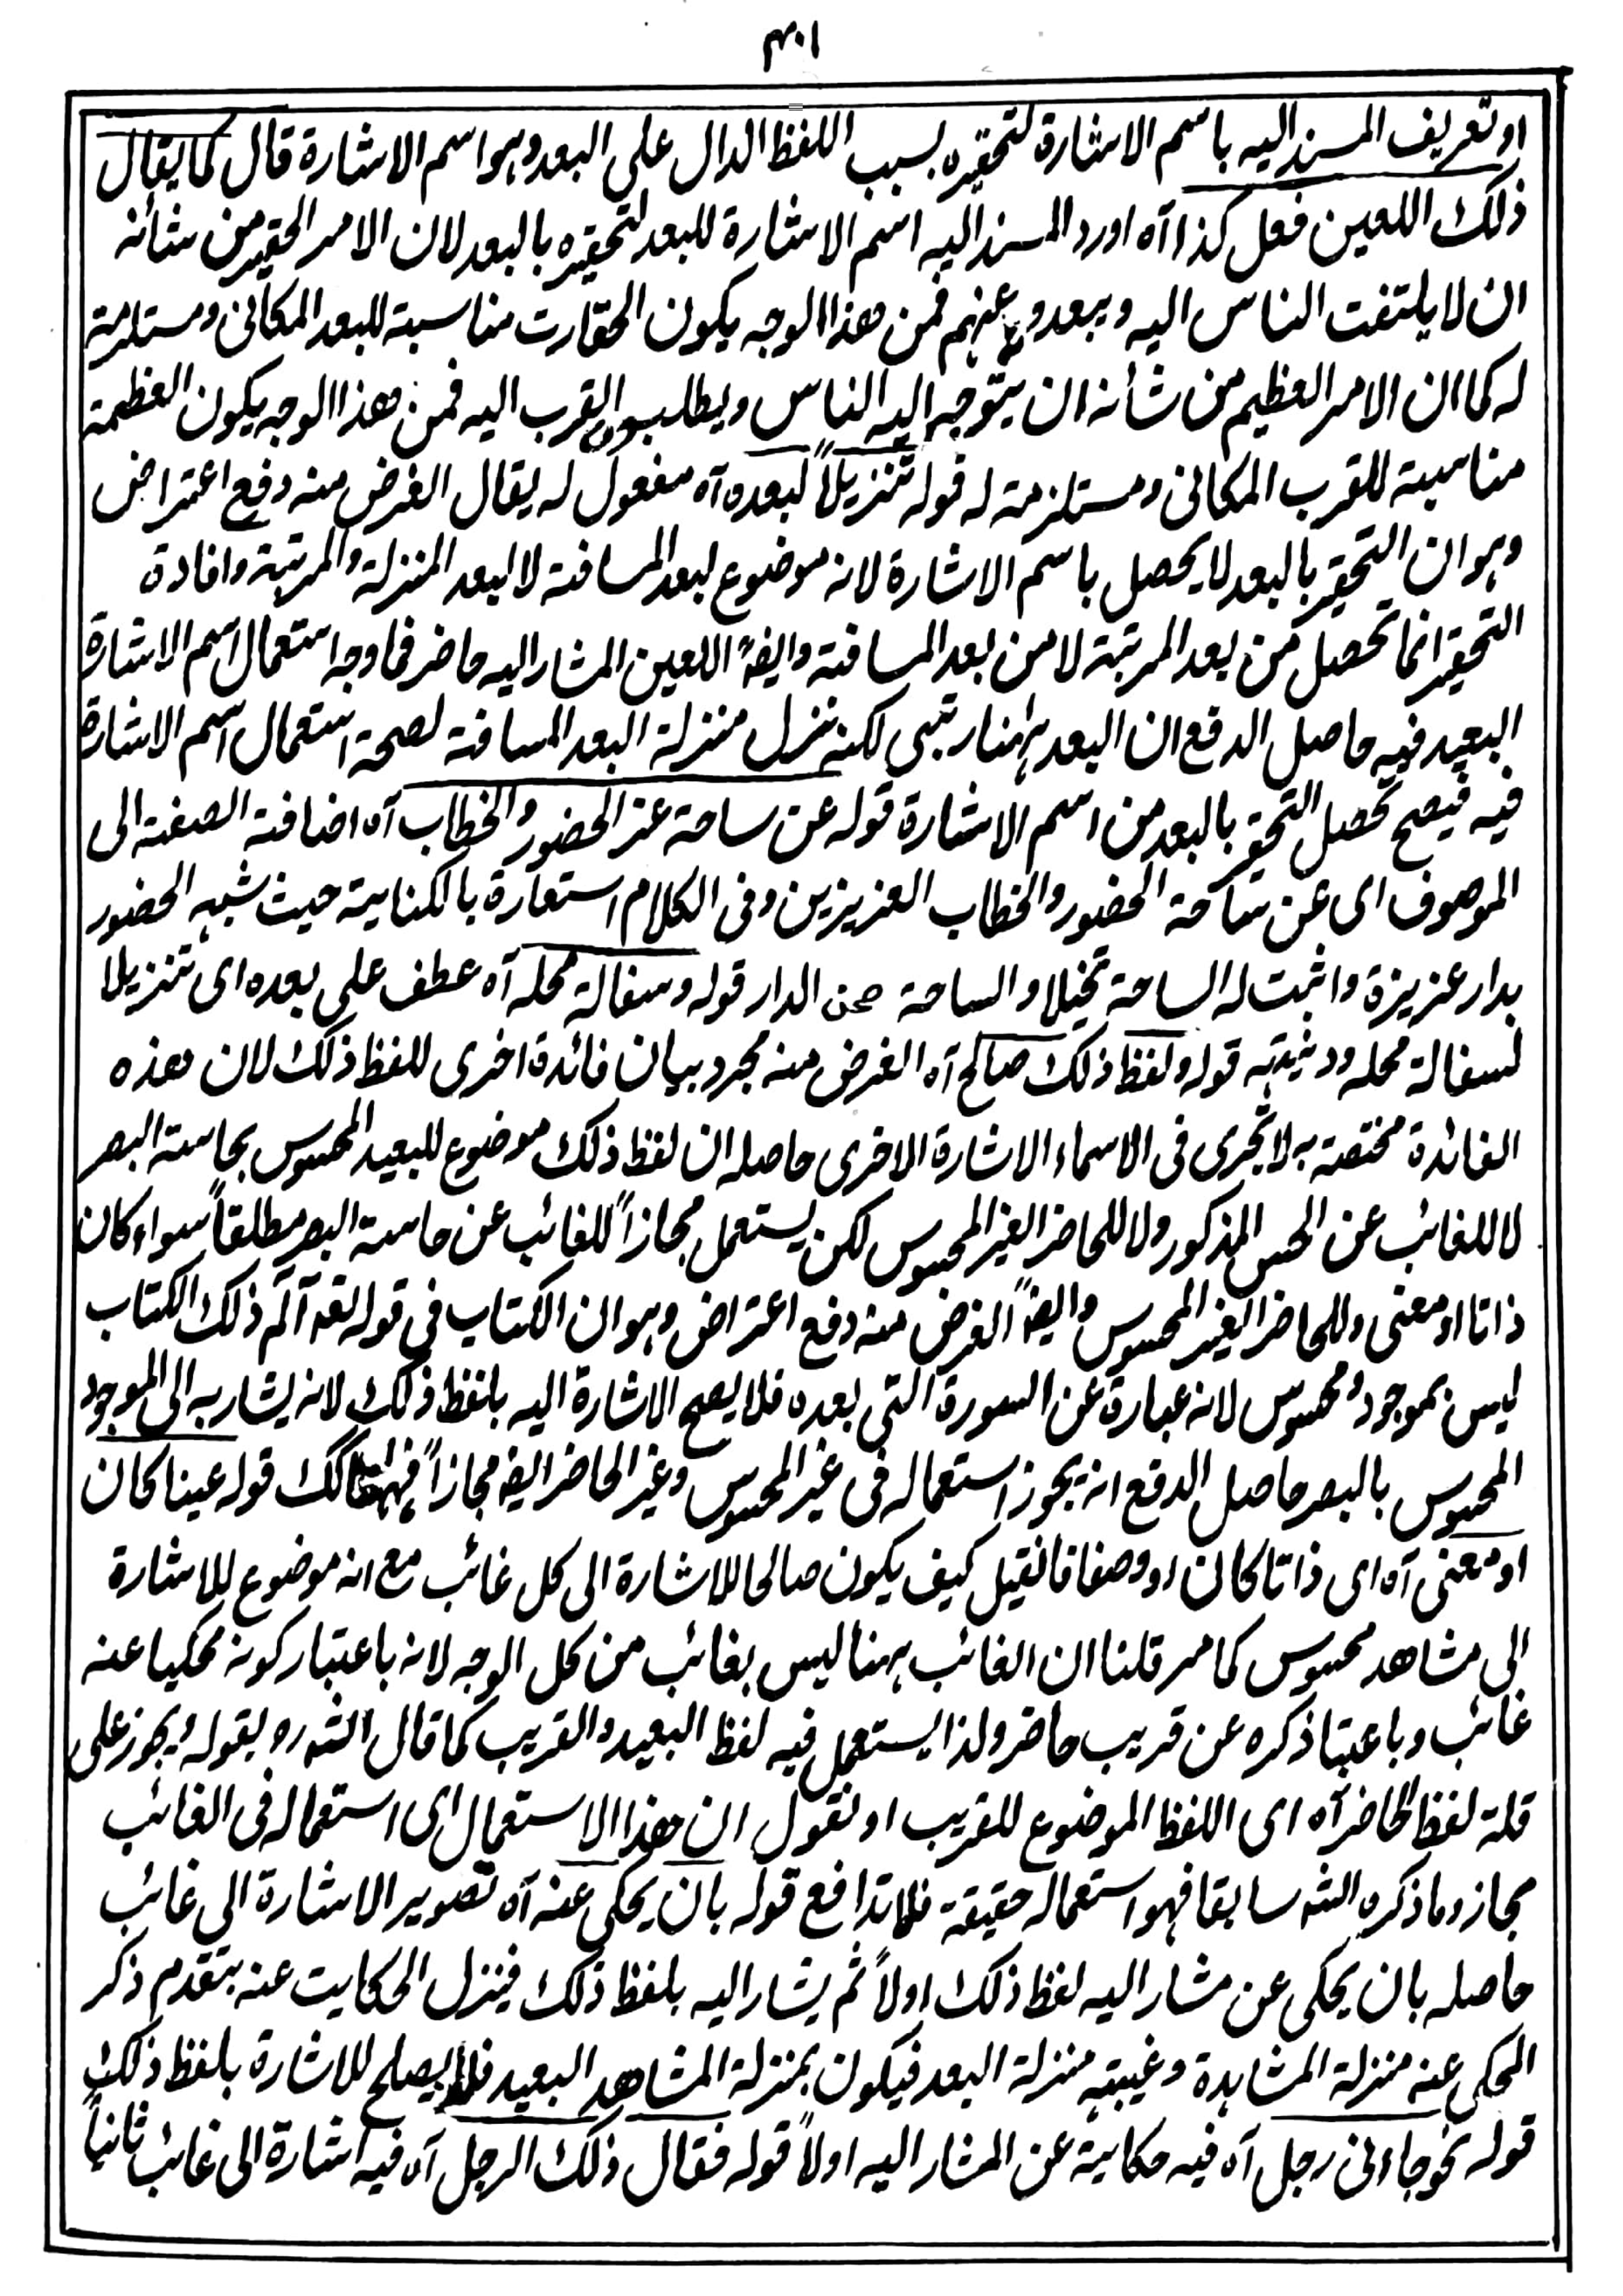 ٣٠١
او تعريف المسند اليه باسم الاشارة لتحقيره بسبب اللفظ الدال على البعد وهو اسم الاشارة قال كما يقال
ذلك اللعين فعل كذا آه اورد المسند اليه اسم الاشارة للبعد لتحقيره بالبعد لان الامر الحقير من شانه
ان لا يلتفت الناس اليه ويبعدو عنهم فمن هذا الوجه يكون الحقارت مناسبة للبعد المكانى ومستلزمة
له كما ان الامر العظيم من شأنه ان يتوجه اليه الناس ويطلبون القرب اليه فمن هذا الوجه يكون العظمة
مناسبة للقرب المكانى ومستلزمة له قوله تنزيلاً لبعده آه مفعول له يقال الغرض منه دفع اعتراض
وهو ان التحقير بالبعد لا يحصل باسم الاشارة لانه موضوع لبعد المسافة لا لبعد المنزلة والمرتبة وافادة
التحقير انما تحصل من بعد المرتبة لا من بعد المسافة وايضًا اللعين المشار اليه حاضر فما وجه استعمال اسم الاشارة
البعيد فيه حاصل الدفع ان البعد ههنا رتبى لكنه نزل منزلة البعد المسافة لصحة استعمال اسم الاشارة
فيه فيصح تحصل التحقير بالبعد من اسم الاشارة قوله عن ساحة عز الحضور والخطاب آه اضافة الصفة الى
الموصوف اى عن ساحة الحضور والخطاب العزيزين وفى الكلام استعارة بالكناية حيث شبه الحضور
بدار عزيزة واثبت له الساحة تخيلا والساحة صحن الدار قوله وسفالة محله آه عطف على بعده اى تنزيلا
لسفالة محله ودنيته قوله ولفظ ذلك صالح آه الغرض منه مجرد بيان فائدة اخرى للفظ ذلك لان هذه
الفائدة مختصة به لا تجرى فى الاسماء الاشارة الاخرى حاصله ان لفظ ذلك موضوع للبعيد المحسوس بحاسة البصر
لا للغائب عن الحس المذكور ولا للحاضر الغير المحسوس لكن يستعمل مجازاً للغائب عن حاسة البصر مطلقاً سواء كان
ذاتا او معنى وللحاضر الغير المحسوس وايضًا الغرض منه دفع اعتراض وهو ان الكتاب فى قوله تعه آلم ذلك الكتاب
ليس بموجود ومحسوس لانه عبارة عن السورة التى بعده فلا يصح الاشارة اليه بلفظ ذلك لانه يشار به الى الموجود
المحسوس بالبصر حاصل الدفع انه يجوز استعماله فى غير المحسوس وغير الحاضر ايضه مجازاً فههنا كك قوله عينا كان
او معنى آه اى ذاتا كان او وصفا فانقيل كيف يكون صالحا للاشارة الى كل غائب مع انه موضوع للاشارة
الى مشاهد محسوس كما مر قلنا ان الغائب ههنا ليس بغائب من كل الوجه لانه باعتبار كونه محكيا عنه
غائب وباعتبا ذكره عن قريب حاضر ولذا يستعمل فيه لفظ البعيد والقريب كما قال الشه ره بقوله ويجوز على
قلة لفظ الحاضر آه اى اللفظ الموضوع للقريب او نقول ان هذا الاستعمال اى استعماله فى الغائب
مجاز وما ذكره الشه سابقا فهو استعماله حقيقة فلا تدافع قوله بان يحكى عنه آه تصوير الاشارة الى غائب
حاصله بان يحكى عن مشار اليه لفظ ذلك اولاً ثم يشار اليه بلفظ ذلك فينزل الحكايت عنه بتقدم ذكر
المحكى عنه منزلة المشاهدة وغيبته منزلة البعد فيكون بمنزلة المشاهد البعيد يصلح للاشارة بلفظ ذلك
قوله نحو جاءنى رجل آه فيه حكاية عن المشار اليه اولاً قوله فقال ذلك الرجل آه فيه اشارة الى غائب ثانياً